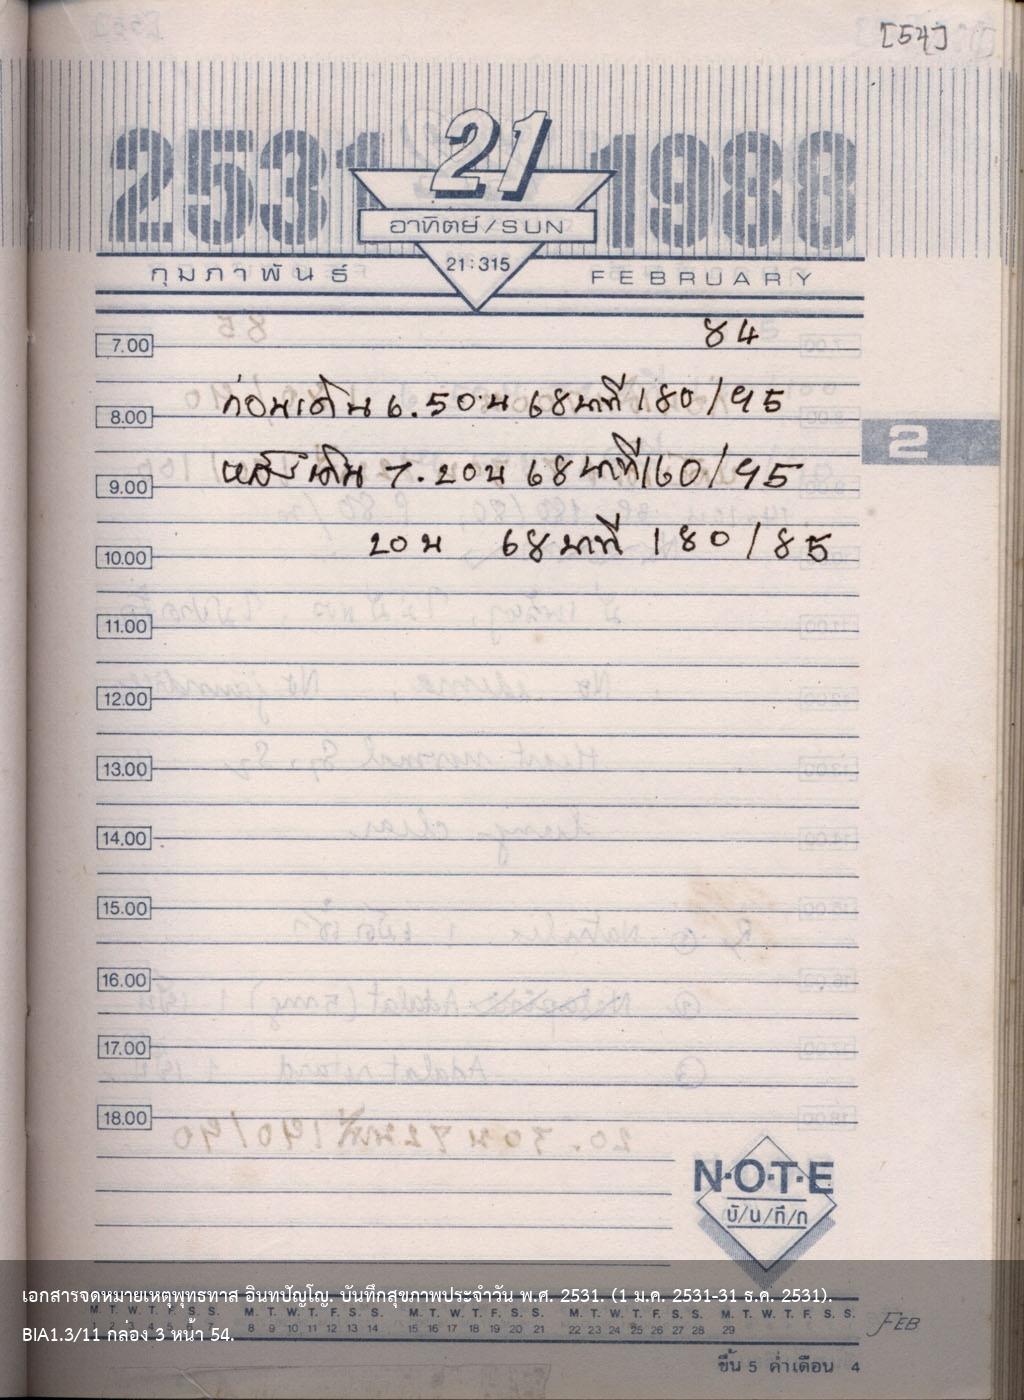 [54]
2531 21 1988
อาทิตย์/SUN
21:315
กุมภาพันธ์ FEBRUARY
84
7.00
ก่อนเดิน 6.50 น 68 นาที 180/95
8.00
2
หลังเดิน 7.20 น 68 นาที 160/95
9.00
20 น 68 นาที 180/85
10.00
11.00
12.00
13.00
14.00
15.00
16.00
17.00
18.00
N·O·T·E
บั/น/ทึ/ก
เอกสารจดหมายเหตุพุทธทาส อินทปัญโญ. บันทึกสุขภาพประจำวัน พ.ศ. 2531. (1 ม.ค. 2531-31 ธ.ค. 2531).
M. T. W. T. F. S. S. M. T. W. T. F. S. S. M. T. W. T. F. S. S. M. T. W. T. F. S. S. M. T. W. T. F. S. S.
1 2 3 4 5 6 7 8 9 10 11 12 13 14 15 16 17 18 19 20 21 22 23 24 25 26 27 28 29
FEB
BIA1.3/11 กล่อง 3 หน้า 54.
ขึ้น 5 ค่ำเดือน 4